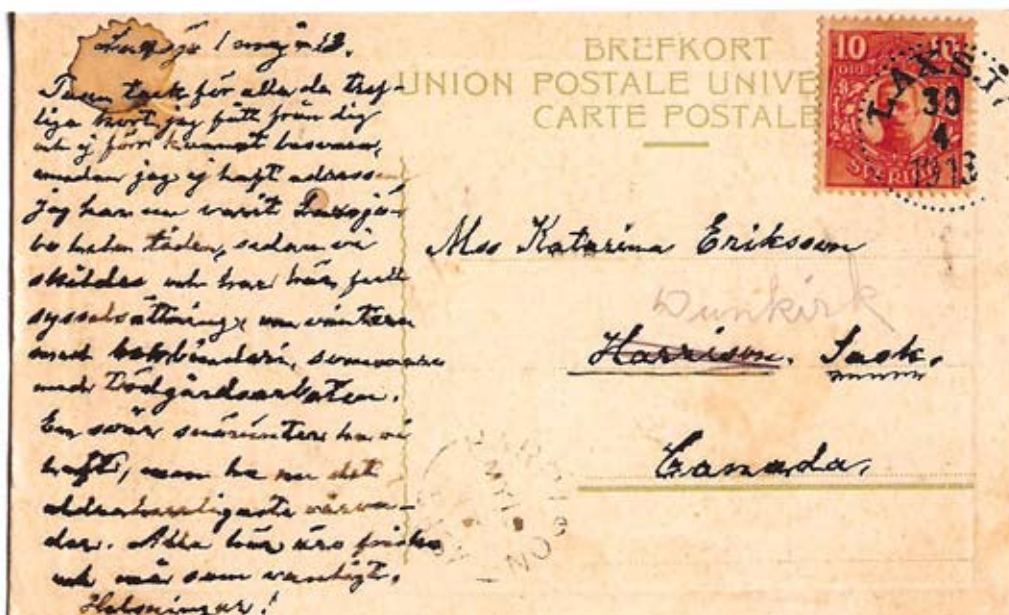 1 maj 13.
Tusen tack för alla de tref-
liga kort jag fått från dig
ej förr kunnat besvara,
emedan jag ej haft adressen
jag har nu varit Laxsjö-
bo hela tiden, sedan vi
skildes och har här full
sysselsättning om vintern
med bokbinderi, sommaren
med Trädgårdsarbeten.
En svår snövinter ha vi
haft, men ha nu det
allra härligaste vårvä-
der. Alla här äro friska
och mår som vanligt.
Helsningar!
BREFKORT
UNION POSTALE UNIVE
CARTE POSTALE
10
ÖRE
SVERIGE
LAXSJ
30
4
1913
Mss Katarina Eriksson
Dunkirk
Harrison. Sask.
Canada.